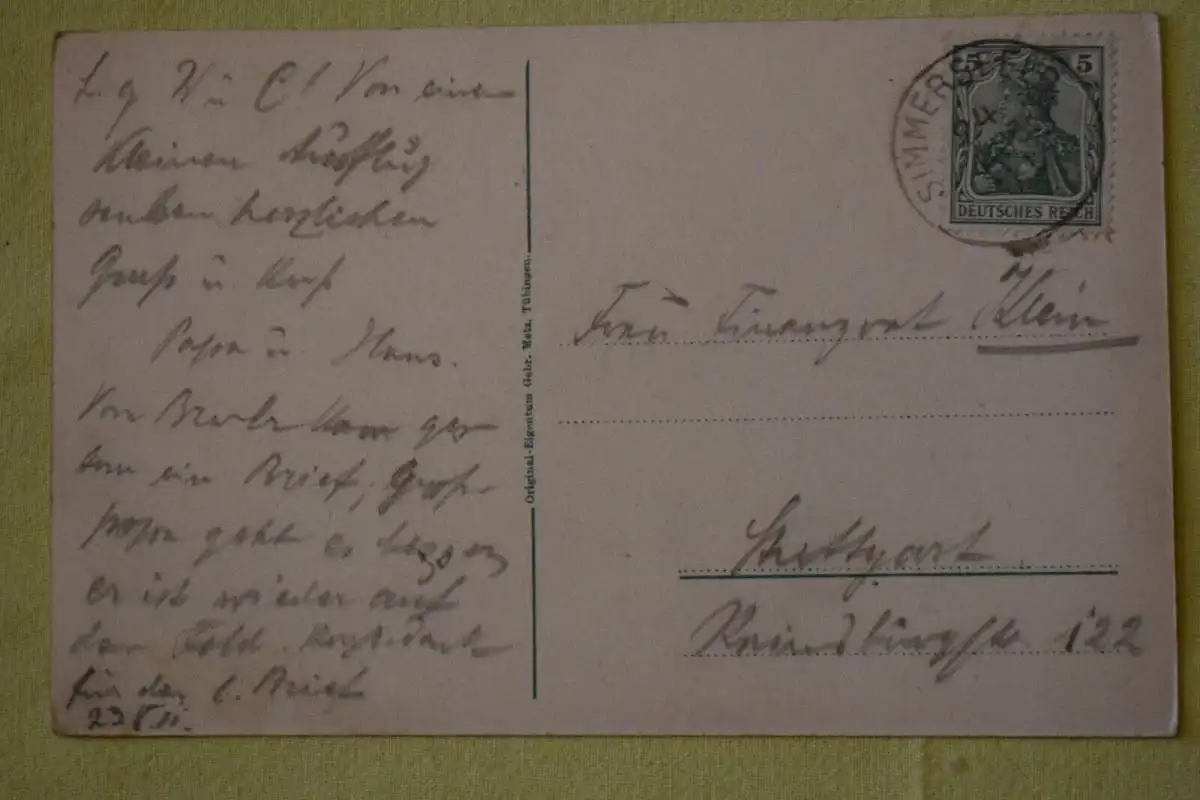 L. g. W u C! Von einem
kleinen Ausflug
senden herzlichen
Gruß u. Kuß
Papa u. Hans.
Von kam ges-
tern ein Brief, Groß-
papa geht es besser,
er ist wieder auf
dem Feld. Herzl. Dank
für den l. Brief
23 V 11.
Original-Eigentum Gebr. Metz, Tübingen.
SIMMERSFELD
5 5
DEUTSCHES REICH
Frau Finanzrat Klein
Stuttgart
122